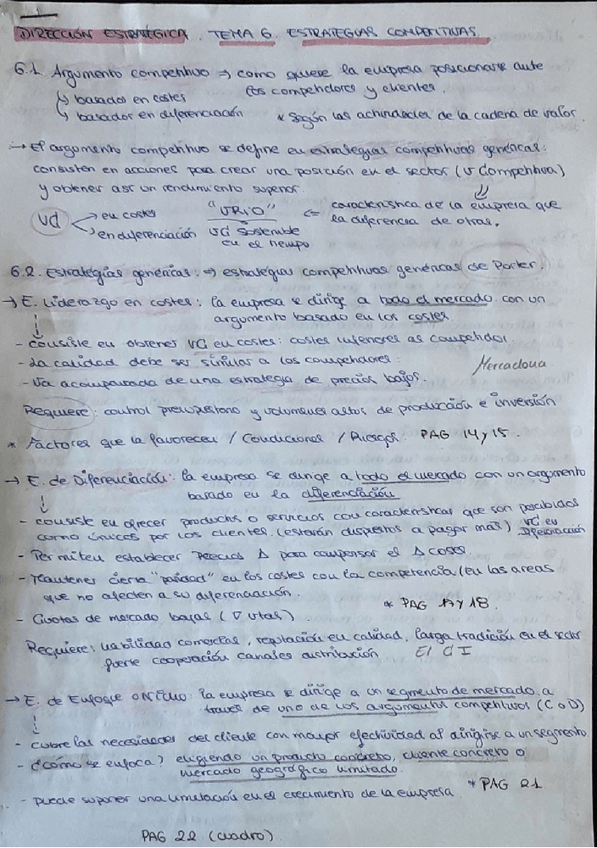 DIRECCIÓN ESTRATÉGICA. TEMA 6. ESTRATEGIAS COMPETITIVAS.
6.1. Argumento competitivo ⇒ como quiere la empresa posicionarse ante
los competidores y clientes.
↳ basados en costes
↳ basados en diferenciación * según las actividades de la cadena de valor.
→ El argumento competitivo se define en estrategias competitivas genéricas:
consisten en acciones para crear una posición en el sector (V Competitiva)
y obtener así un rendimiento superior.
Vd en costes "VRIO" ⇐ característica de la empresa que
en diferenciación Vd sostenible la diferencia de otras.
en el tiempo
6.2. Estrategias genéricas: ⇒ estrategias competitivas genéricas de Porter.
→ E. Liderazgo en costes: la empresa se dirige a todo el mercado con un
argumento basado en los costes.
- consiste en obtener VC en costes: costes inferiores as competidor
- La calidad debe ser similar a los competidores.
Mercadona
- Va acompañada de una estrategia de precios bajos.
Requiere: control presupuestario y volumenes altos de producción e inversión
* Factores que la favorecen / Condiciones / Riesgos. PAG 14 y 15.
→ E. de Diferenciación: la empresa se dirige a todo el mercado con un argumento
basado en la diferenciación
- consiste en ofrecer productos o servicios con características que son percibidos
como únicos por los clientes. (estarán dispuestos a pagar más) VC en Diferenciación
- Permiten establecer Precios Δ para compensar el Δ costes.
- Mantener cierta "paridad" en los costes con la competencia (en las areas
que no afecten a su diferenciación.
* PAG 17 y 18.
- Cuotas de mercado bajas (∇ vtas)
Requiere: habilidad comercial, reputación en calidad, larga tradición en el sector
fuerte cooperación canales distribución El CI
→ E. de Enfoque o nicho: la empresa se dirige a un segmento de mercado a
través de uno de los argumentos competitivos (C o D)
- cubre las necesidades del cliente con mayor efectividad al dirigirse a un segmento
- ¿Cómo se enfoca? eligiendo un producto concreto, cliente concreto o
mercado geográfico limitado.
- puede suponer una limitación en el crecimiento de la empresa. * PAG 21
PAG 22 (cuadro).